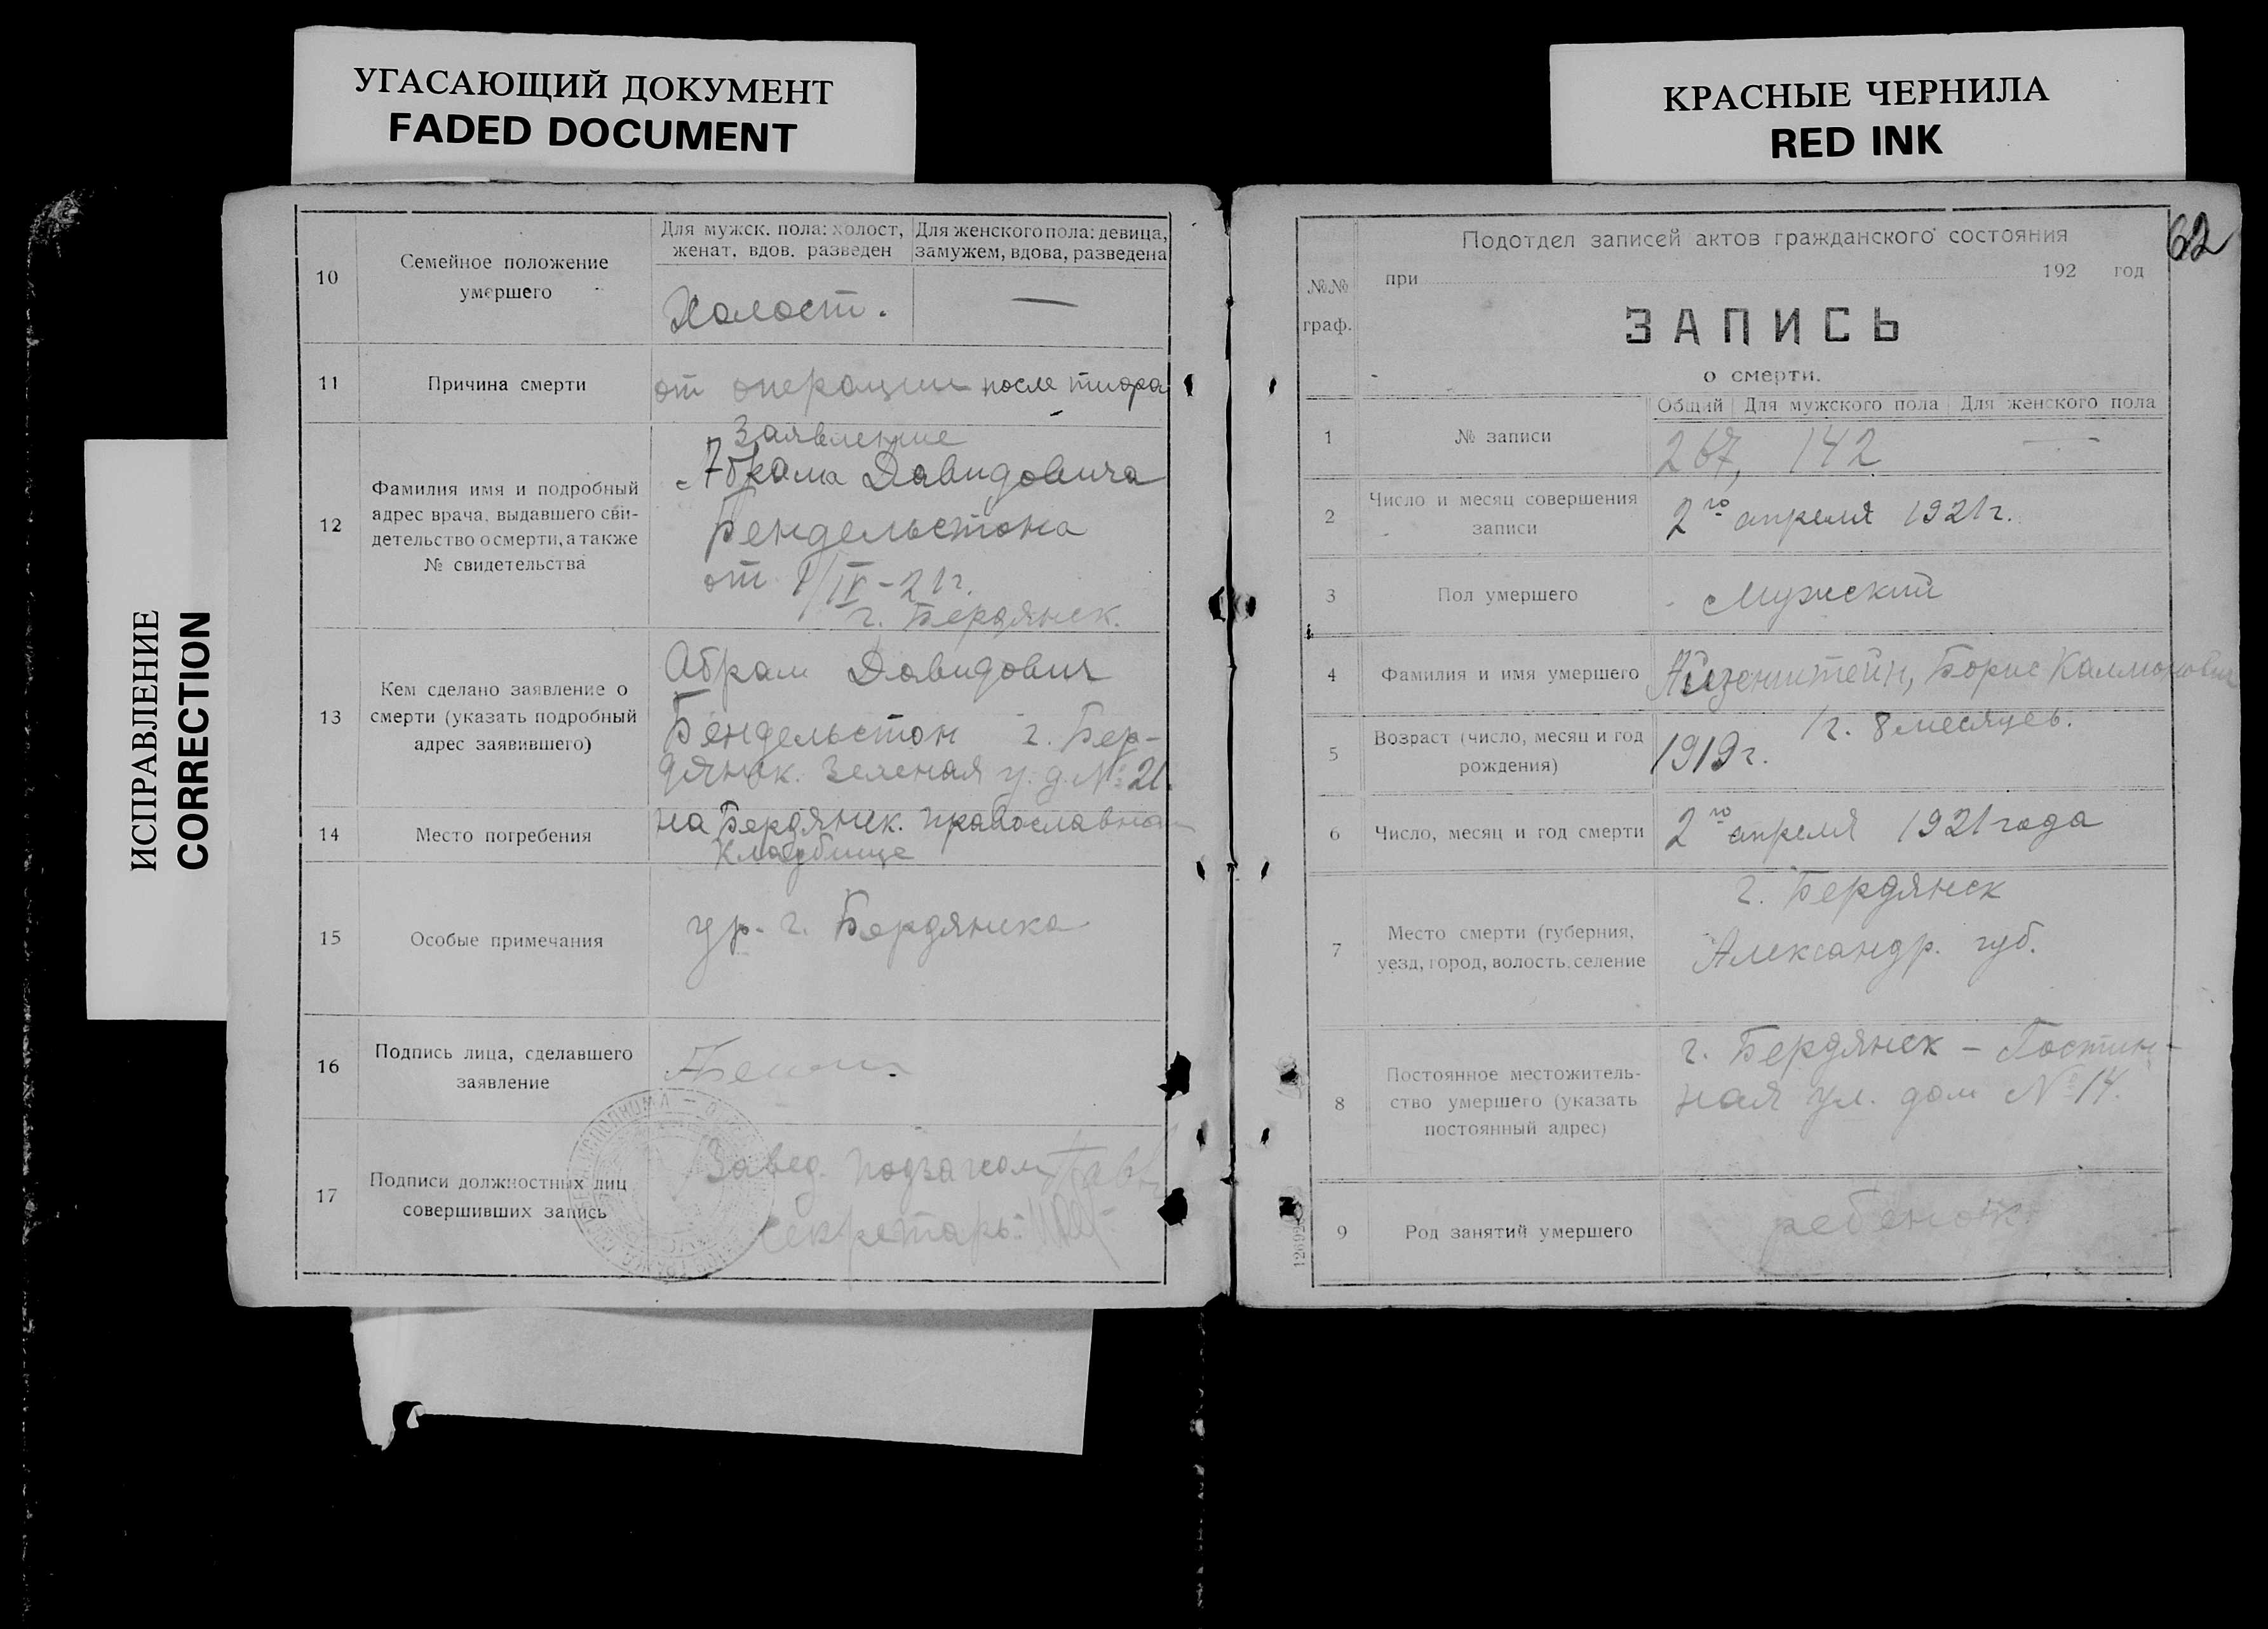 УГАСАЮЩИЙ ДОКУМЕНТ
FADED DOCUMENT
КРАСНЫЕ ЧЕРНИЛА
RED INK
ИСПРАВЛЕНИЕ
CORRECTION
10
Семейное положение
умершего
Для мужск. пола: холост,
женат, вдов. разведен
Для женского пола: девица,
замужем, вдова, разведена
Холост.
—
11
Причина смерти
от операции после тифа
12
Фамилия имя и подробный
адрес врача, выдавшего сви-
детельство о смерти, а также
№ свидетельства
Заявление
Абрама Давидовича
Бендельстона
от 1/IV-21г.
г. Бердянск.
13
Кем сделано заявление о
смерти (указать подробный
адрес заявившего)
Абрам Давидович
Бендельстон г. Бер-
дянск. Зеленая у. д. № 21.
14
Место погребения
на Бердянск. православном
кладбище
15
Особые примечания
ур. г. Бердянска
16
Подпись лица, сделавшего
заявление
17
Подписи должностных лиц
совершивших запись
Завед. подзагсом
Секретарь:
62
№№
граф.
Подотдел записей актов гражданского состояния
при 192 год
ЗАПИСЬ
о смерти.
Общий Для мужского пола Для женского пола
1
№ записи
267, 142 —
2
Число и месяц совершения
записи
2го апреля 1921г.
3
Пол умершего
Мужский
4
Фамилия и имя умершего
Айзенштейн, Борис Калманович
5
Возраст (число, месяц и год
рождения)
1г. 8 месяцев.
1919г.
6
Число, месяц и год смерти
2го апреля 1921 года
7
Место смерти (губерния,
уезд, город, волость, селение
г. Бердянск
Александр. губ.
8
Постоянное местожитель-
ство умершего (указать
постоянный адрес)
г. Бердянск – Гостин-
ная ул. дом № 14.
9
Род занятий умершего
ребенок